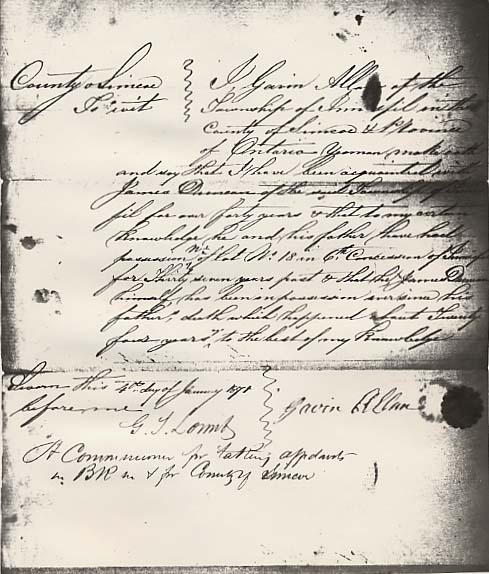 County of Simcoe
To wit
I Gavin Allan of the
Township of Innisfil in the
County of Simcoe & Province
of Ontario Yeoman make oath
and say that I have been acquainted with
James Duncan of the said Township of Innis-
fil for over forty years & that to my certain
knowledge he and his father have had
possession of Lot No 18 in 6th Concession of Innisfil
for Thirty seven years past & that the James Duncan
himself has been in possession ever since his
father's death which happened about Twenty
four years, to the best of my knowledge
Sworn this 4th day of January 1871
before me
Gavin Allan
G. T. Lount
A Commissioner for taking affidavits
in BR in & for County of Simcoe